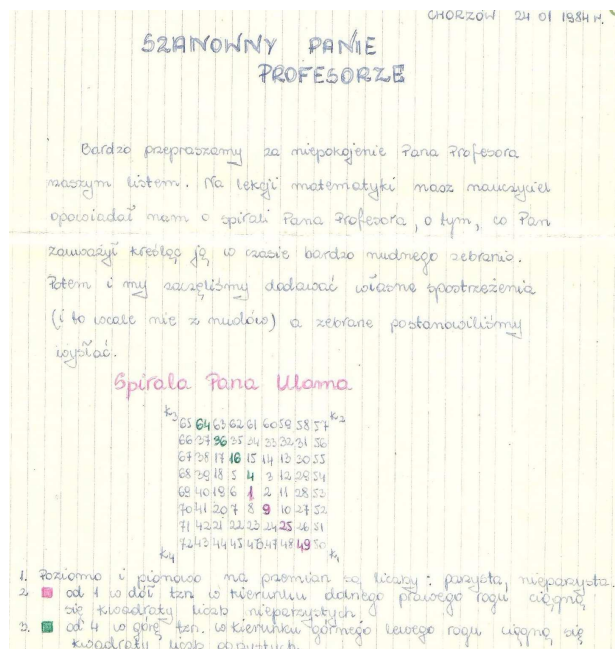 CHORZÓW 24 01 1984 r.
SZANOWNY PANIE
PROFESORZE
Bardzo przepraszamy za niepokojenie Pana Profesora
naszym listem. Na lekcji matematyki nasz nauczyciel
opowiadał nam o spirali Pana Profesora, o tym, co Pan
zauważył kreśląc ją w czasie bardzo nudnego zebrania.
Potem i my zaczęliśmy dodawać własne spostrzeżenia
(i to wcale nie z nudów) a zebrane postanowiliśmy
wysłać.
Spirala Pana Ulama
k₃
65 64 63 62 61 60 59 58 57
66 37 36 35 34 33 32 31 56
67 38 17 16 15 14 13 30 55
68 39 18 5 4 3 12 29 54
69 40 19 6 1 2 11 28 53
70 41 20 7 8 9 10 27 52
71 42 21 22 23 24 25 26 51
72 43 44 45 46 47 48 49 50
k₄ k₁
1. Poziomo i pionowo na przemian są liczby: parzysta, nieparzysta.
2. od 1 w dół tzn. w kierunku dolnego prawego rogu ciągną
się kwadraty liczb nieparzystych.
3. od 4 w górę tzn. w kierunku górnego lewego rogu ciągną się
kwadraty liczb parzystych.